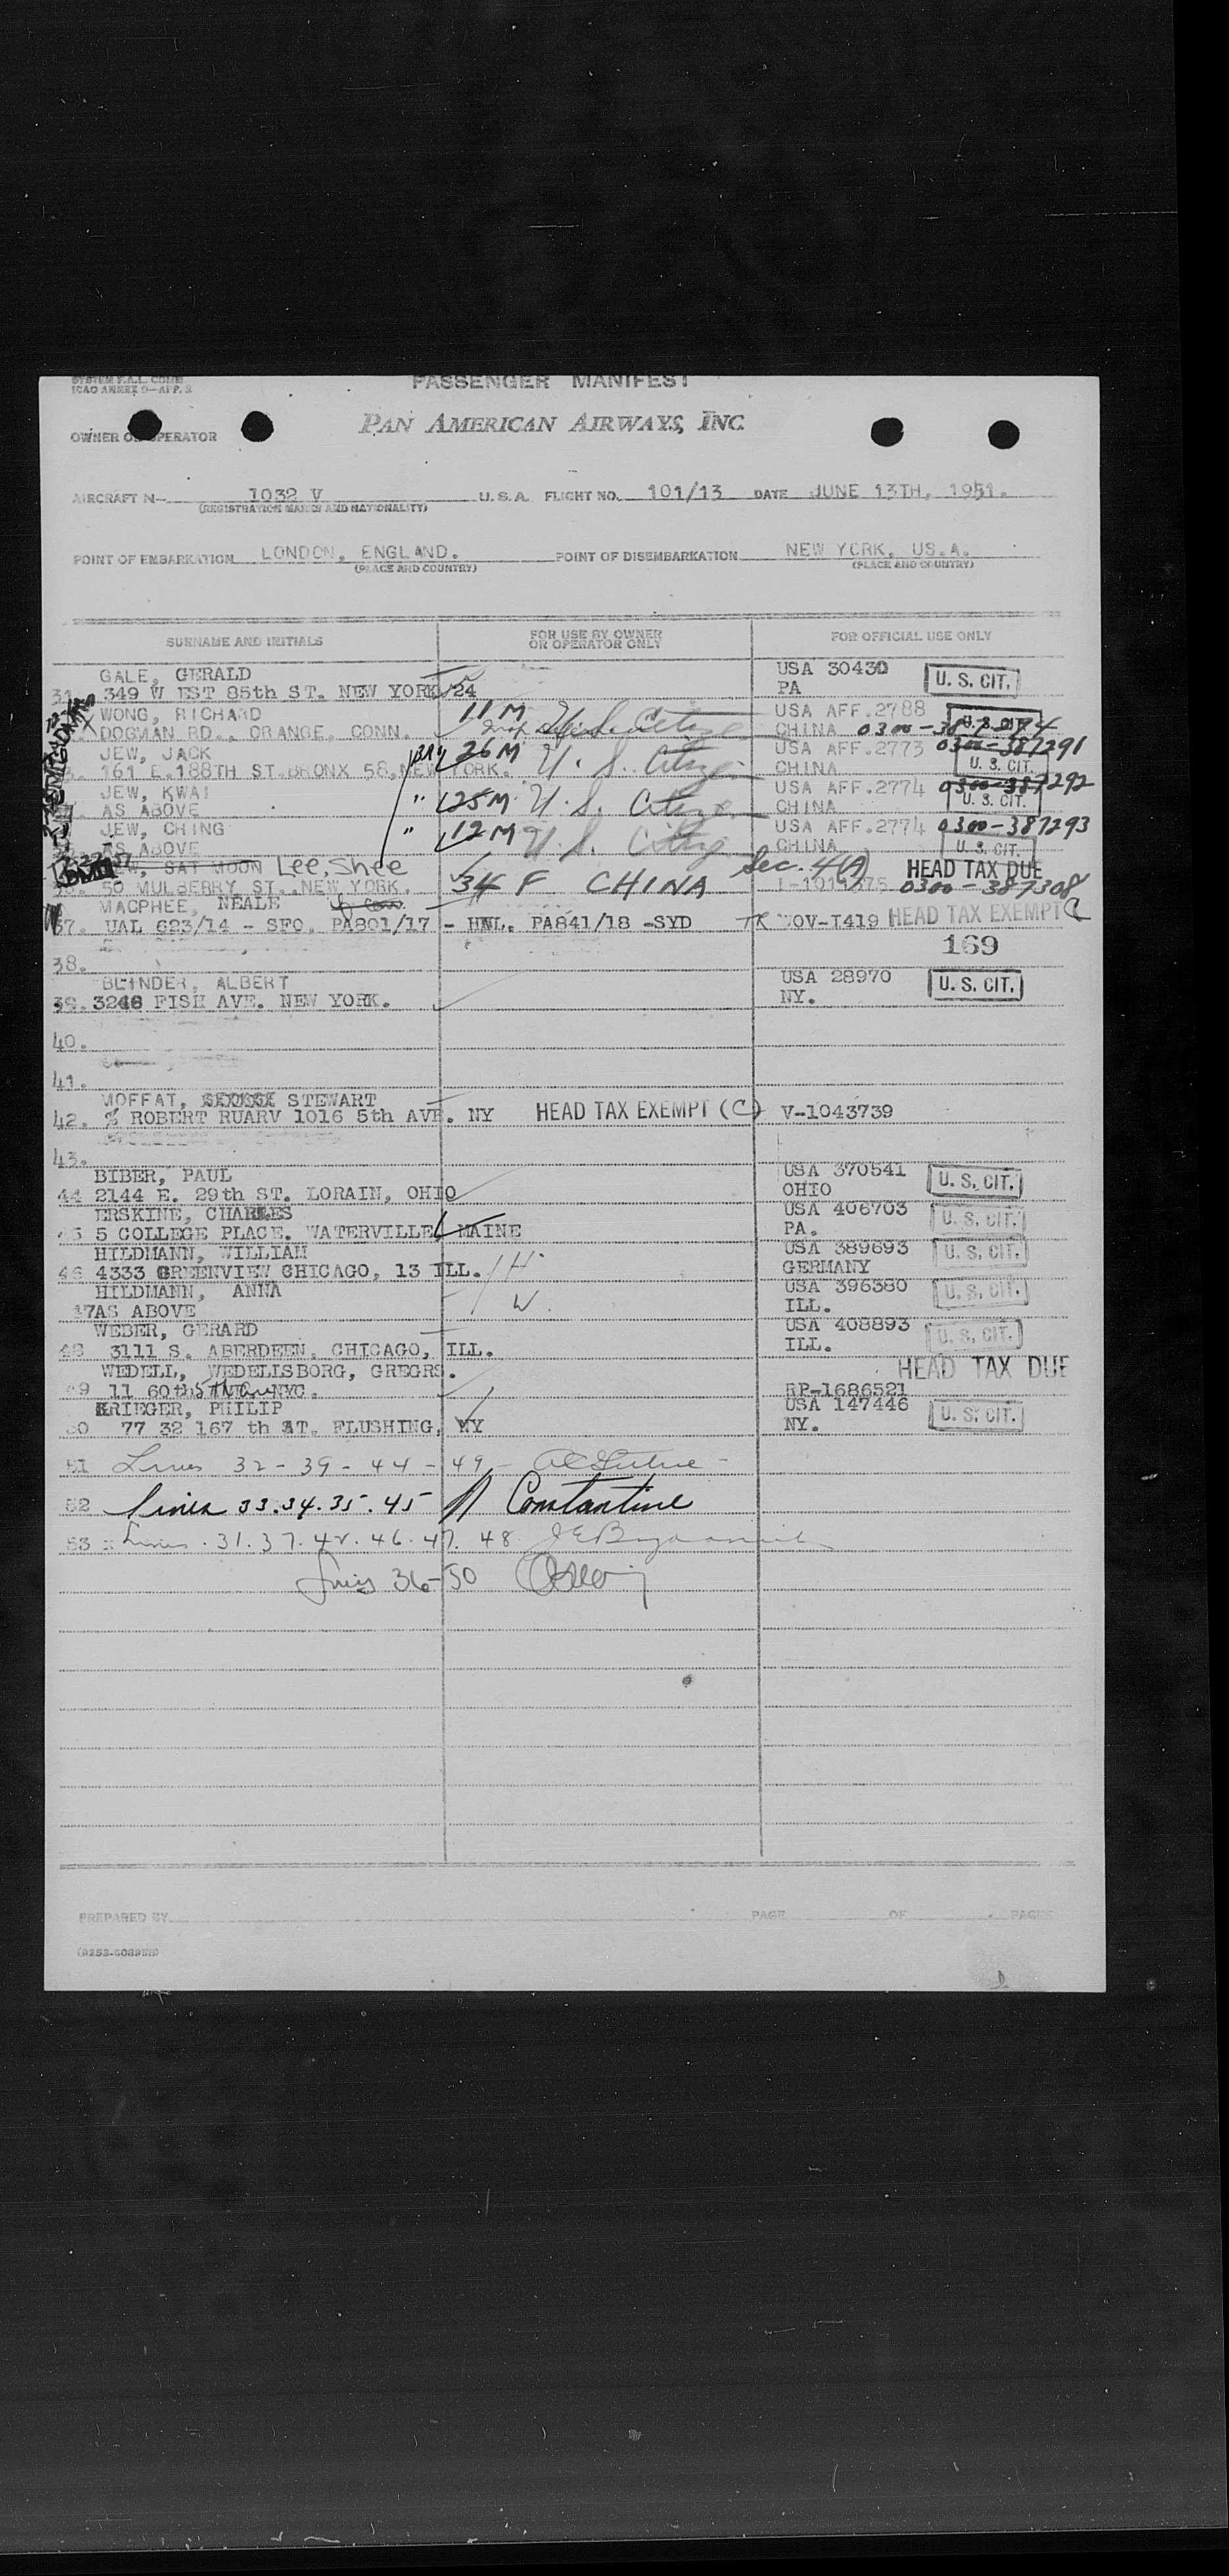 SYSTEM F.A.L. COMB
ICAO ANNEX 9—APP. 2
PASSENGER MANIFEST
OWNER OR OPERATOR
PAN AMERICAN AIRWAYS, INC
AIRCRAFT N— 1032 V U.S.A. FLIGHT NO. 101/13 DATE JUNE 13TH, 1951.
(REGISTRATION MARKS AND NATIONALITY)
POINT OF EMBARKATION LONDON, ENGLAND. POINT OF DISEMBARKATION NEW YORK, US.A.
(PLACE AND COUNTRY) (PLACE AND COUNTRY)
SURNAME AND INITIALS FOR USE BY OWNER OR OPERATOR ONLY FOR OFFICIAL USE ONLY
GALE, GERALD USA 30430 U. S. CIT.
31. 349 W EST 85th ST. NEW YORK 24 PA
WONG, RICHARD 11 M USA AFF.2788 U. S. CIT.
DOGMAN RD., ORANGE, CONN. U. S. Citizen CHINA
JEW, JACK 26 M U. S. Citizen USA AFF.2773 0300-387291
161 E.188TH ST.BRONX 58,NEW YORK. CHINA U. S. CIT.
JEW, KWAI " 25 M U. S. Citizen USA AFF.2774 0300-387292
AS ABOVE CHINA U. S. CIT.
JEW, CHING " 12 M U. S. Citizen USA AFF.2774 0300-387293
AS ABOVE CHINA U. S. CIT.
SAT MOON Lee, Shee 34 F CHINA Sec. 4(A) HEAD TAX DUE
50 MULBERRY ST. NEW YORK. 0300-387308
MACPHEE, NEALE
37. UAL 623/14 - SFO. PA801/17 - HNL. PA841/18 -SYD TR VOV-I419 HEAD TAX EXEMPT C
169
38.
BLINDER, ALBERT USA 28970 U. S. CIT.
39. 3246 FISH AVE. NEW YORK. NY.
40.
41.
MOFFAT, STEWART
42. % ROBERT RUARV 1016 5th AVE. NY HEAD TAX EXEMPT (C) V-1043739
43.
BIBER, PAUL USA 370541 U. S. CIT.
44 2144 E. 29th ST. LORAIN, OHIO OHIO
ERSKINE, CHARLES USA 406703 U. S. CIT.
45 5 COLLEGE PLACE. WATERVILLE MAINE PA.
HILDMANN, WILLIAM USA 389693 U. S. CIT.
46 4333 GREENVIEW CHICAGO, 13 ILL. H GERMANY
HILDMANN, ANNA USA 396380 U. S. CIT.
47AS ABOVE W. ILL.
WEBER, GERARD USA 408893 U. S. CIT.
48 3111 S. ABERDEEN. CHICAGO, ILL. ILL.
WEDELL, WEDELLSBORG, GREGRS. HEAD TAX DUE
49 11 60th NYC. RP-1686521
KRIEGER, PHILIP USA 147446 U. S. CIT.
50 77 32 167 th ST. FLUSHING, NY NY.
51 Lines 32-39-44-49-
52 lines 33.34.35.45 Constantine
53 Lines .31.37.42.46.47.48
Lines 36-50
PREPARED BY PAGE OF PAGES